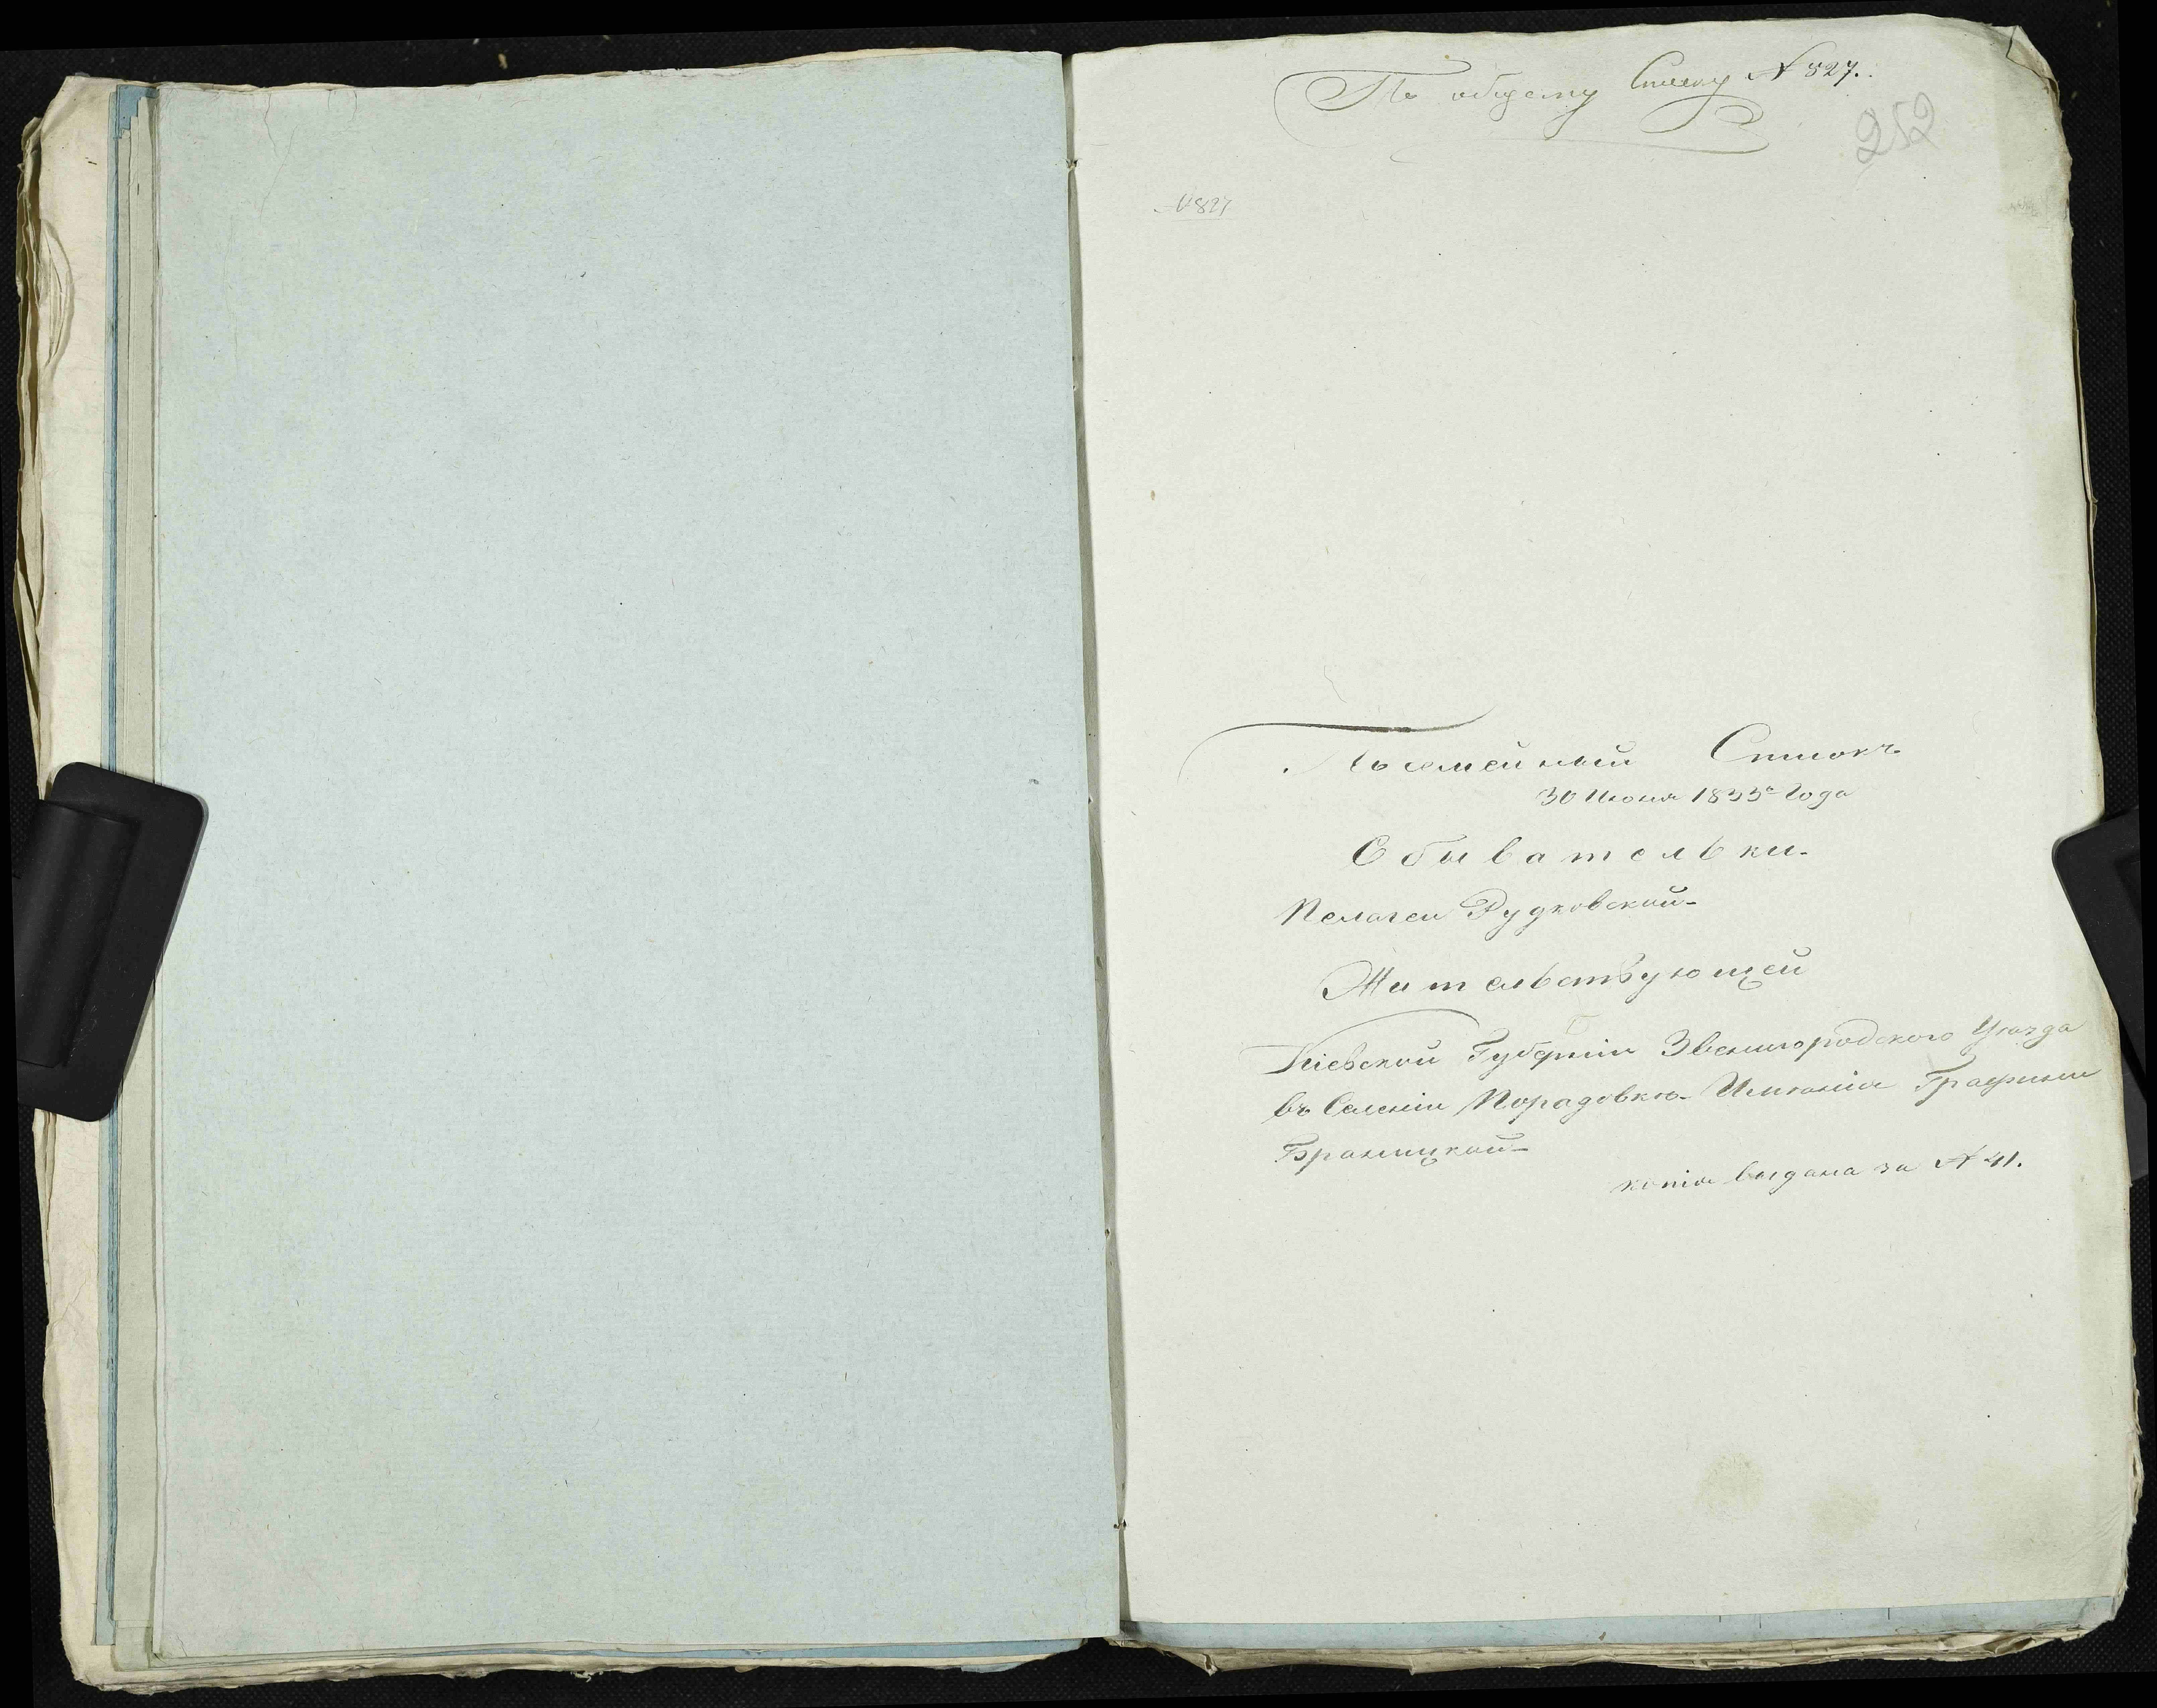 По общему Списку № 827.
252
№ 827
Посемейный Списокъ
30 Июня 1833го Года
Обывательки
Пелагеи Рудковской
Жительствующей
Кіевской Губерніи Звенигородского Уѣзда
въ Селеніи Порадовкѣ Имѣнія Графини
Браницкой
копія выдана за № 41.